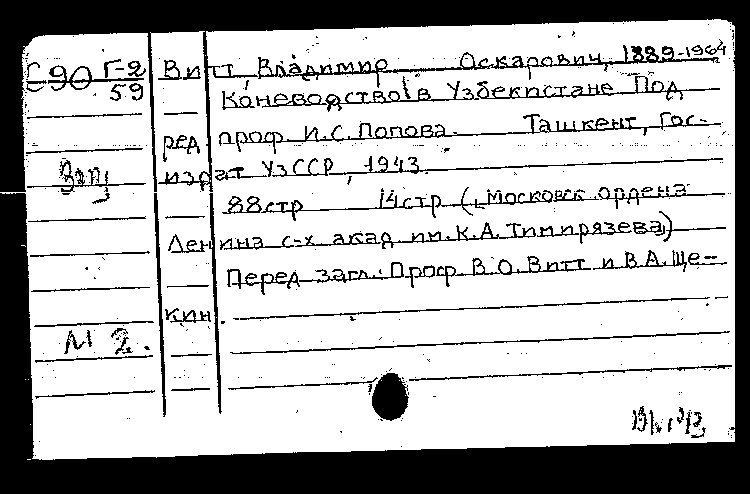 С90 Г-2
59
Витт, Владимир Оскарович, 1889-1964
Коневодство в Узбекистане Под
ред. проф И.С. Попова. Ташкент, Гос-
издат УзССР, 1943.
88стр 14стр (Московск. ордена
Ленина с-х акад. им. К.А. Тимирязева)
Перед загл.: Проф. В.О. Витт и В.А. Ще-
кин.
М 2.